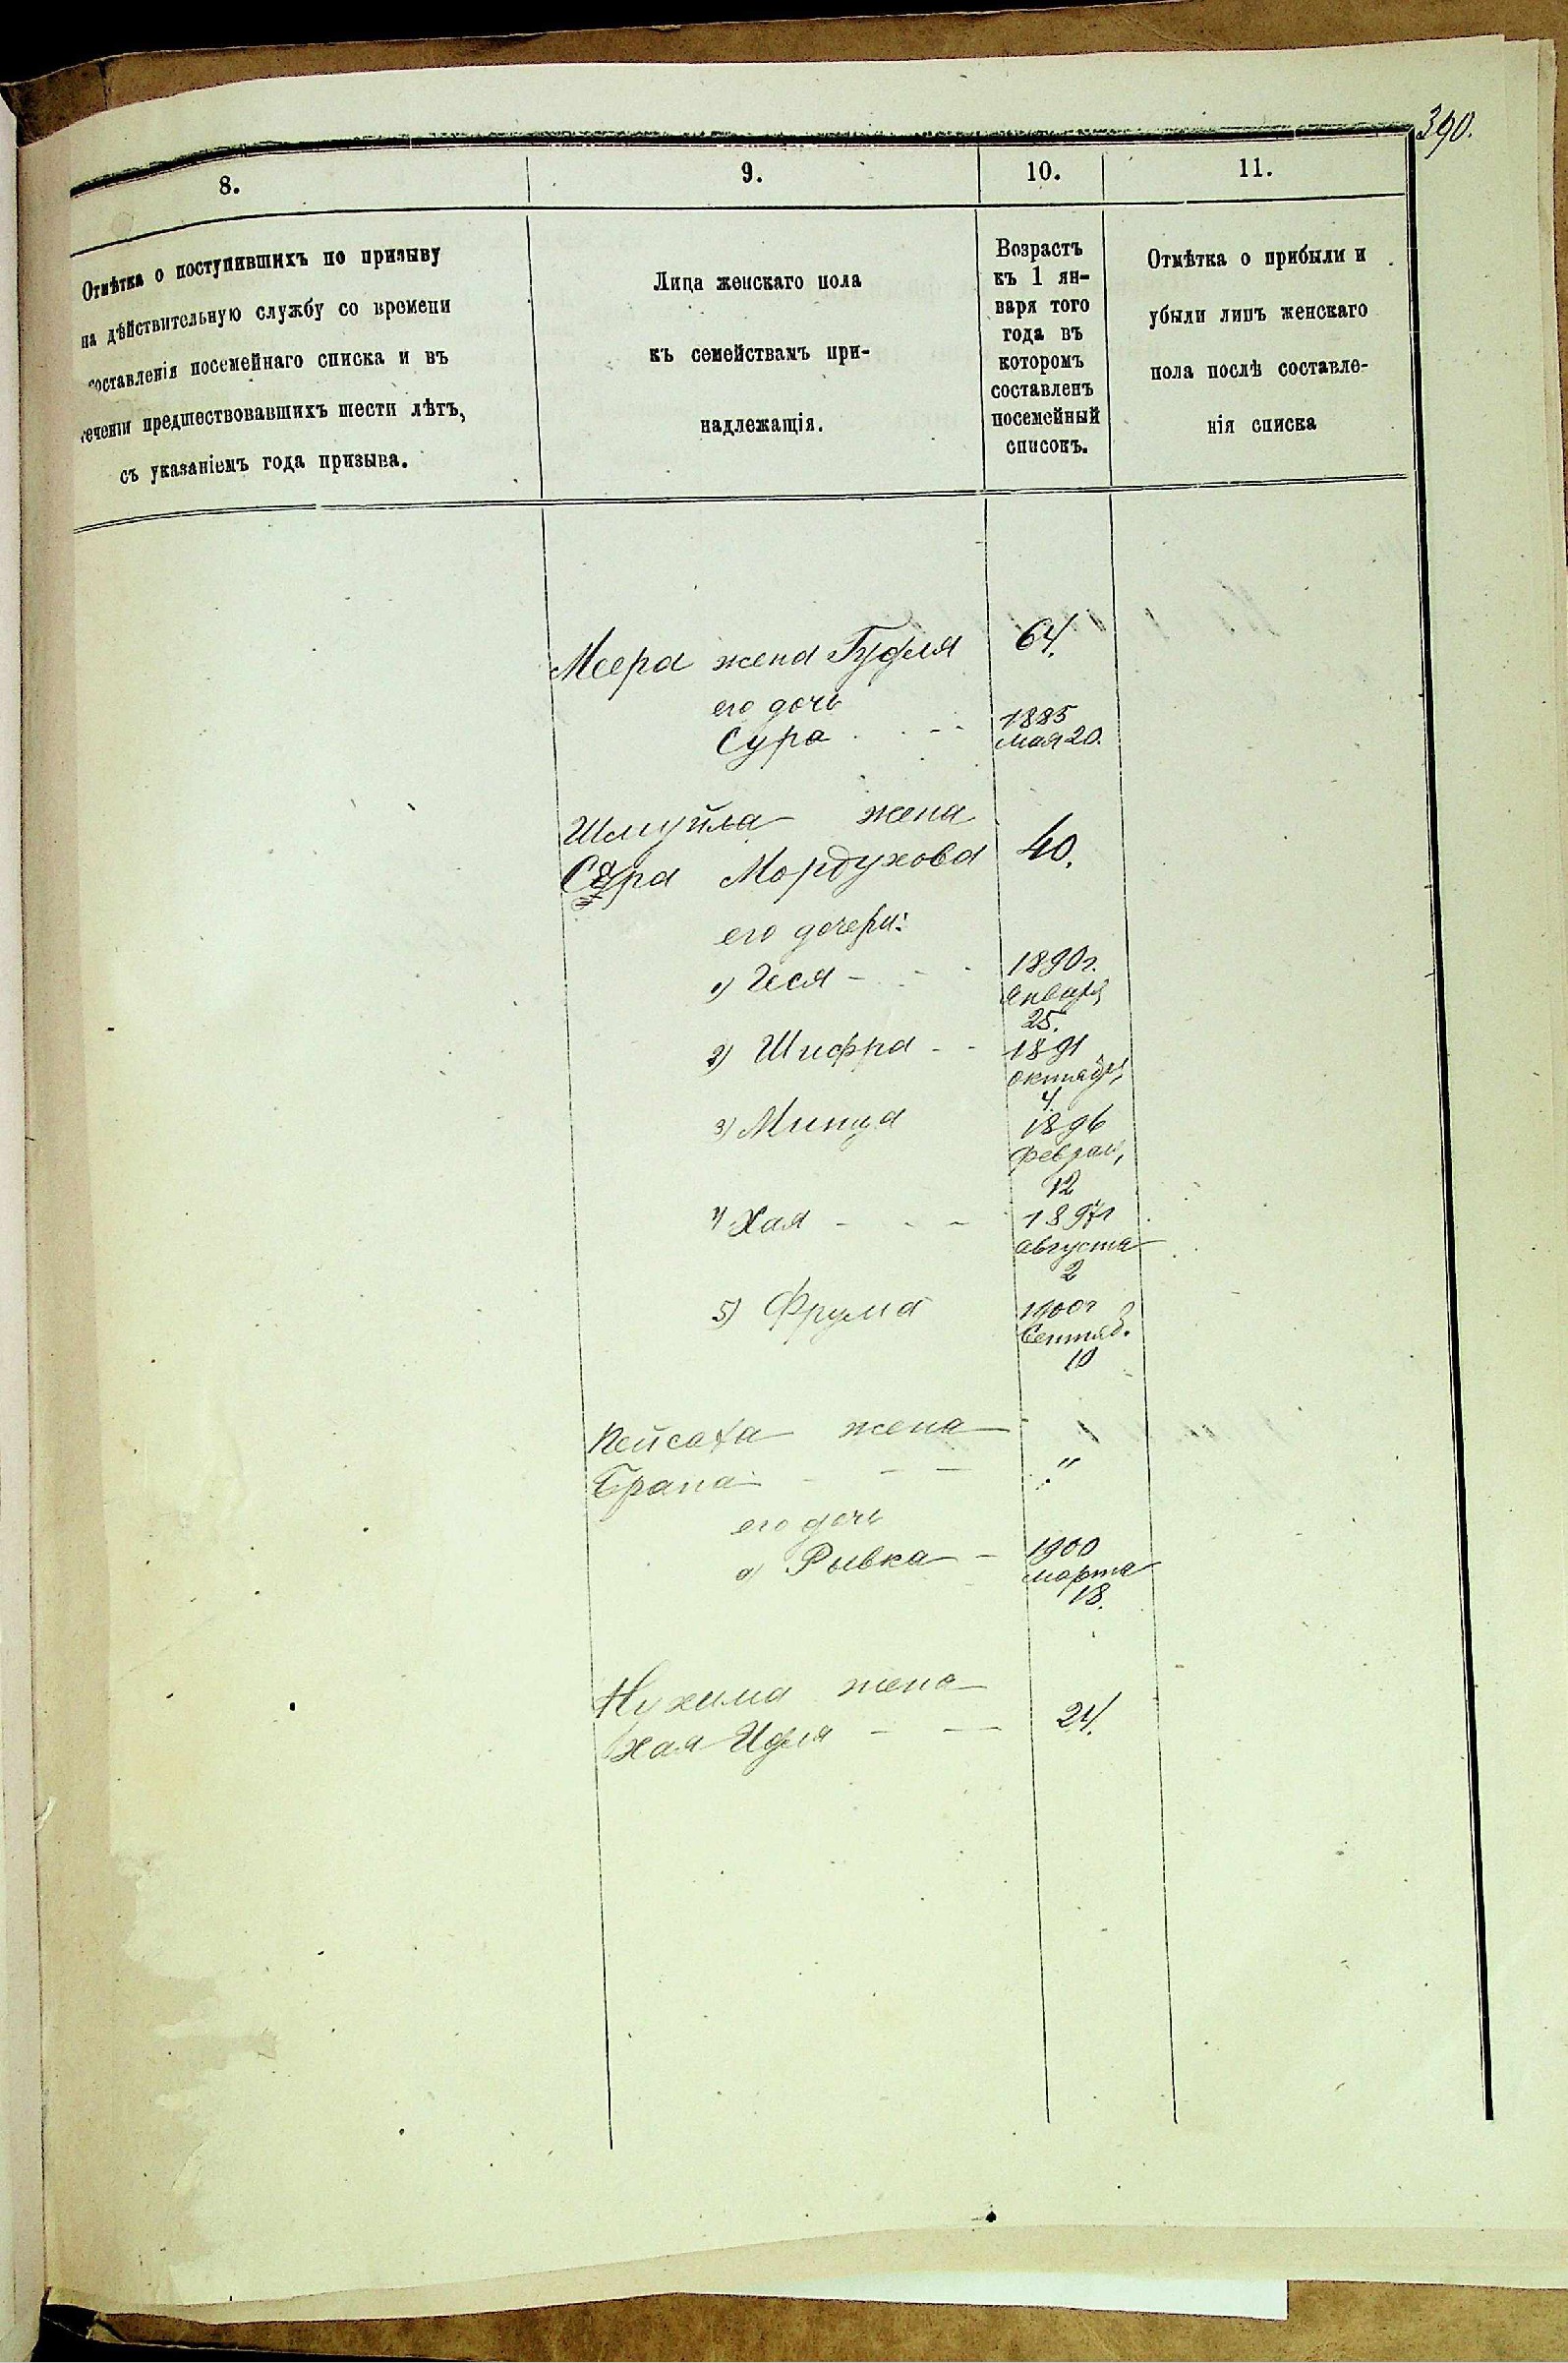 390.
8.
9.
10.
11.
Отмѣтка о поступившихъ по призыву
на дѣйствительную службу со времени
составленія посемейнаго списка и въ
теченіи предшествовавшихъ шести лѣтъ,
съ указаніемъ года призыва.
Лица женскаго пола
къ семействамъ при-
надлежащія.
Возрастъ
къ 1 ян-
варя того
года въ
которомъ
составленъ
посемейный
списокъ.
Отмѣтка о прибыли и
убыли лицъ женскаго
пола послѣ составле-
нія списка
Меера жена Гудля 64.
его дочь
Сура 1885
мая 20.
Шмуйла жена
Сура Мордухова 40.
его дочери:
1) Геся 1890 г.
января
25.
2) Шифра 1891
октября
4
3) Минца 1896
феврал,
12
4) Хая 1897 г
августа
2
5) Фрума 1900 г
Сентяб.
10
Пейсаха жена
Брана "
его дочь
а) Рывка 1900
марта
18.
Нухима жена
Хая Идля 24.